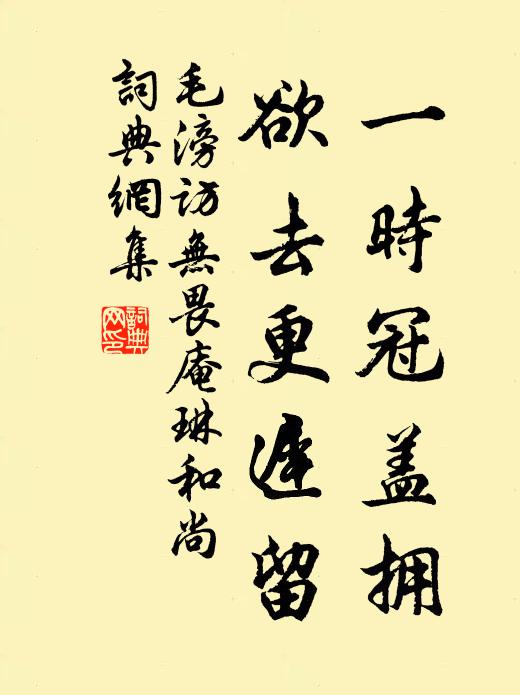 一時冠盖拥
欲去更遲留
毛滂访無畏庵琳和尚
詞典網集
詞典网印